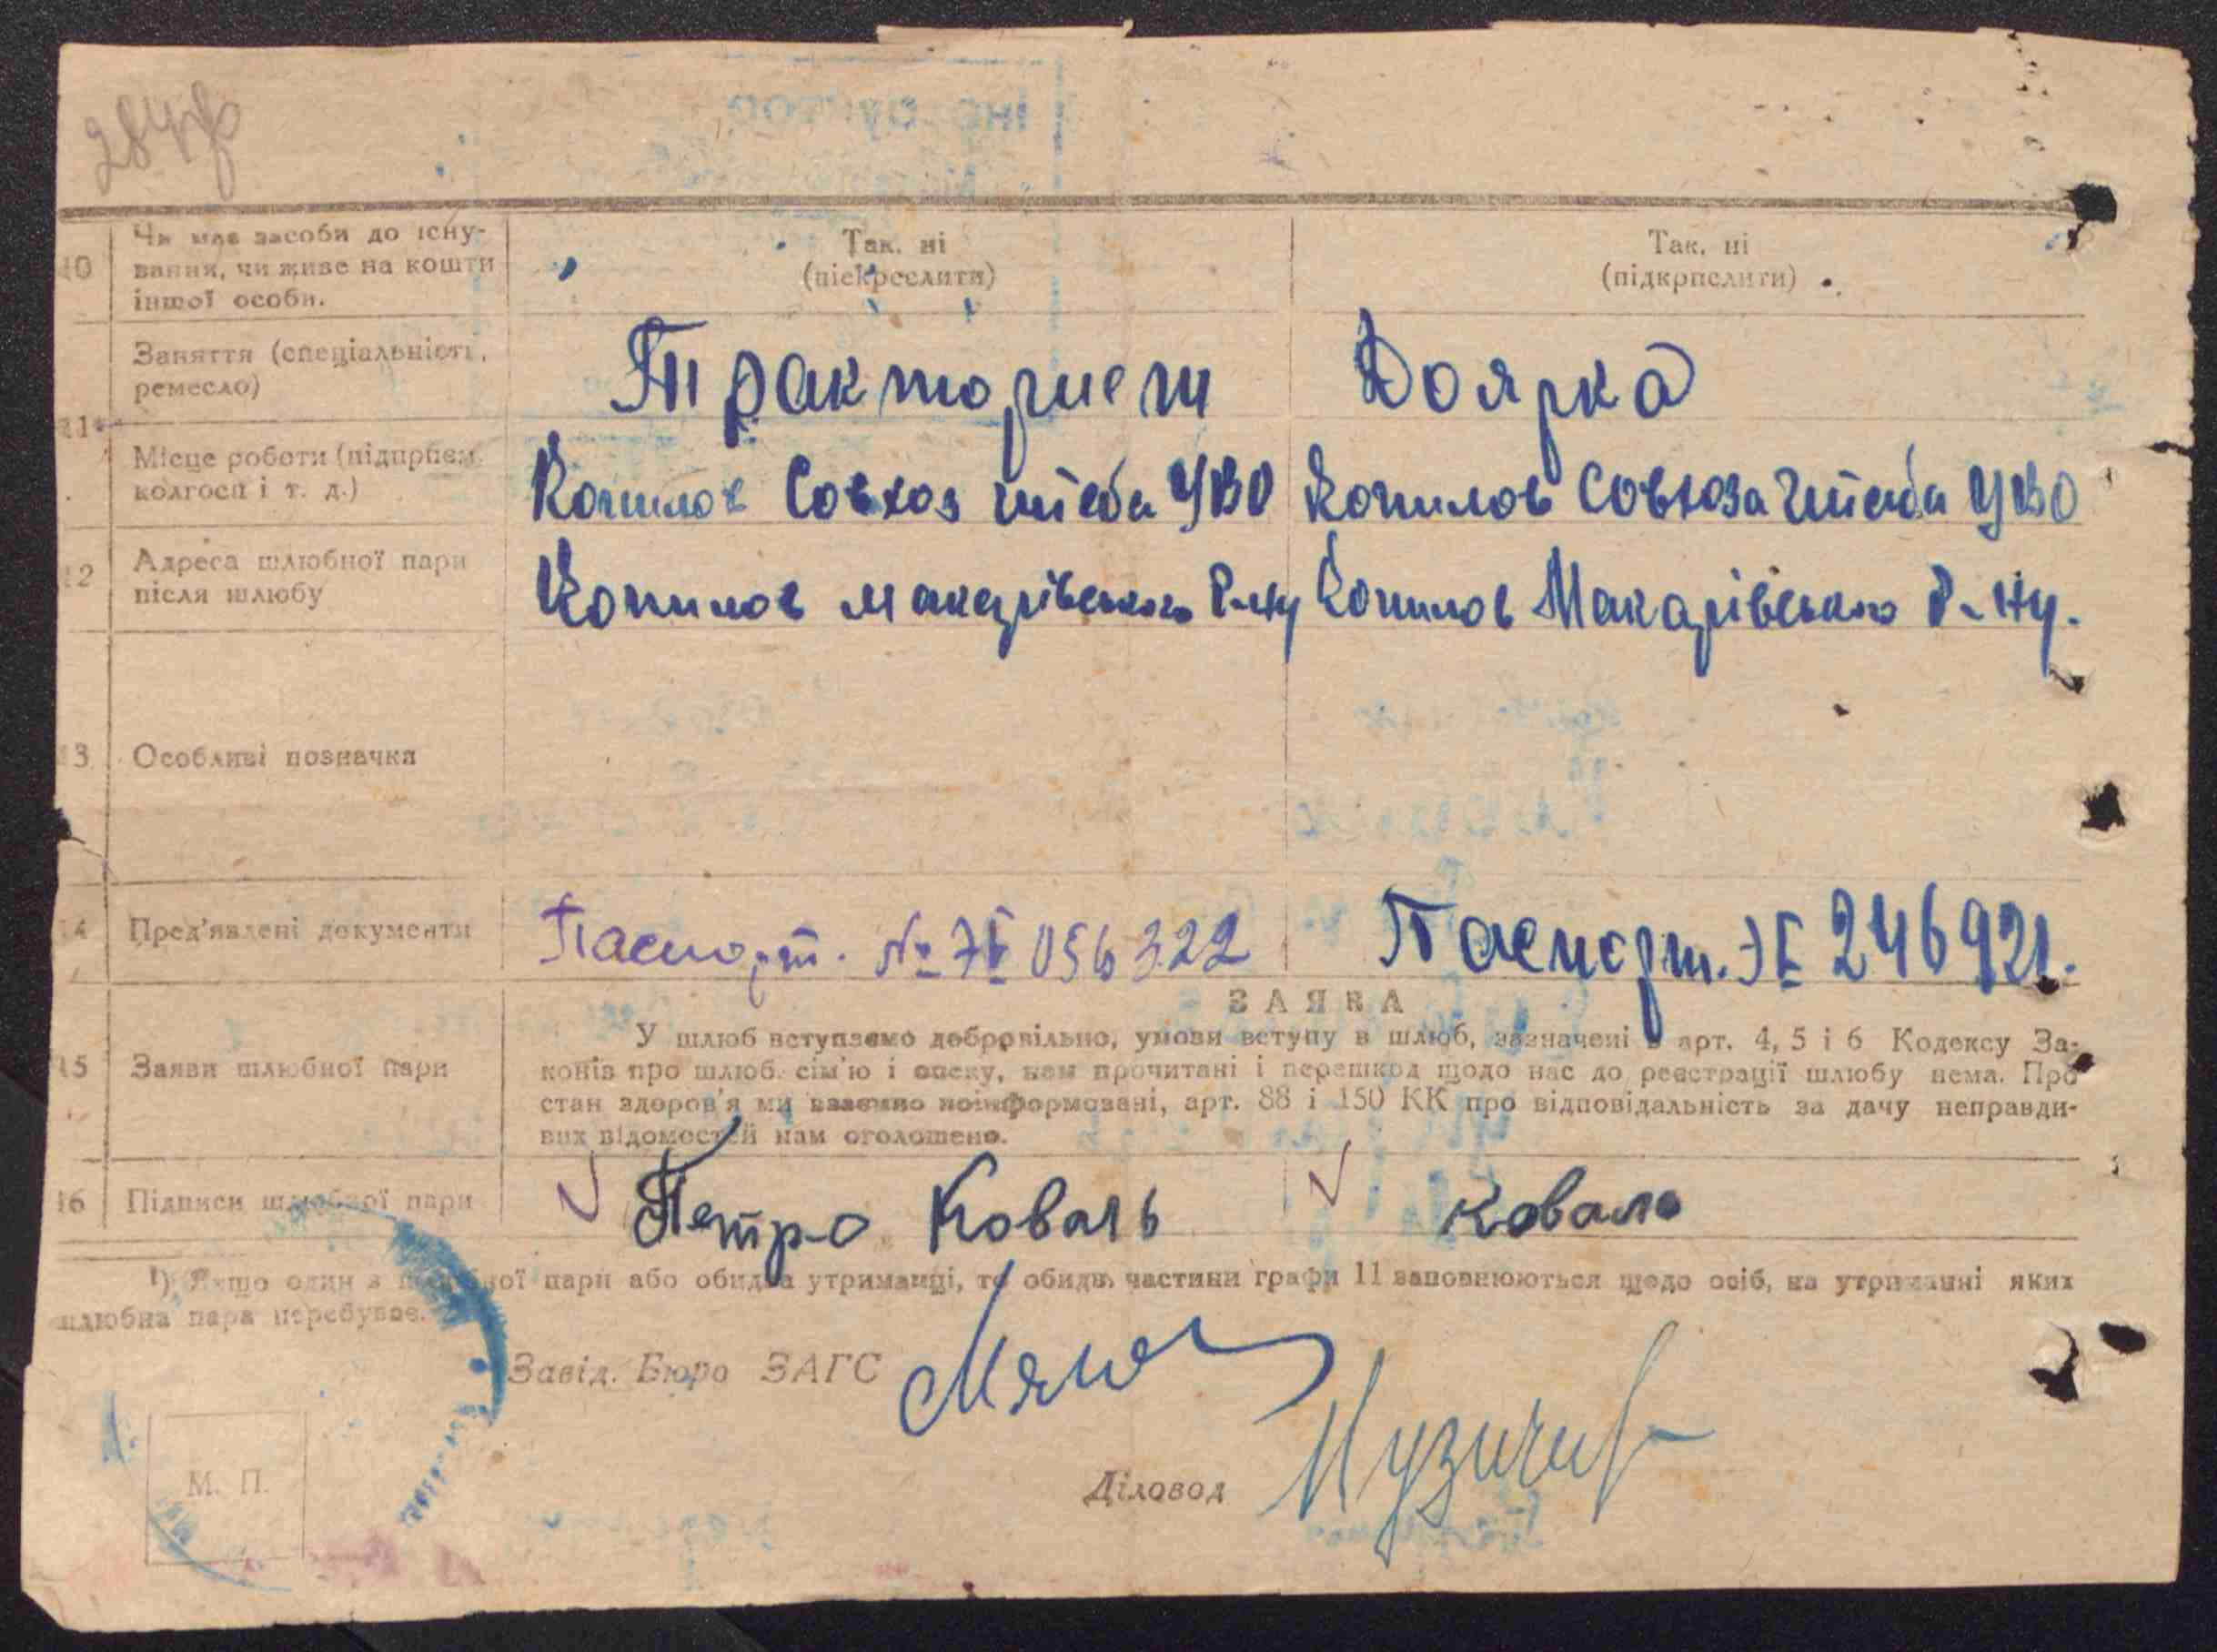 10 Чи має засоби до існу- Так, ні Так, ні
вання, чи живе на кошти (підкреслити) (підкрпслити)
іншої особи.
Заняття (спеціальність, Тракторист Доярка
ремесло)
11
Місце роботи (підприєм. Копилов Совхоз штаба УВО Копилов Совхоза Штаба УВО
колгосп і т. д.)
12 Адреса шлюбної пари Копилов Макарівського Р-ну Копилов Макарівського Р-ну.
після шлюбу
13 Особливі позначка
14 Пред'явлені документи Паспорт. № 056322 Паспорт. 246921.
ЗАЯВА
15 Заяви шлюбної пари У шлюб вступаємо добровільно, умови вступу в шлюб, зазначені в арт. 4, 5 і 6 Кодексу За-
конів про шлюб. сім'ю і опеку, нам прочитані і перешкод щодо нас до реєстрації шлюбу нема. Про
стан здоров'я ми взаємно поінформовані, арт. 88 і 150 КК про відповідальність за дачу неправди-
вих відомостей нам оголошено.
16 Підписи шлюбної пари Петро Коваль Коваль
1) Якщо один з шлюбної пари або обидва утриманці, то обидві частини графи 11 заповнюються щодо осіб, на утриманні яких
шлюбна пара перебуває.
Завід. Бюро ЗАГС
Діловод
М. П.